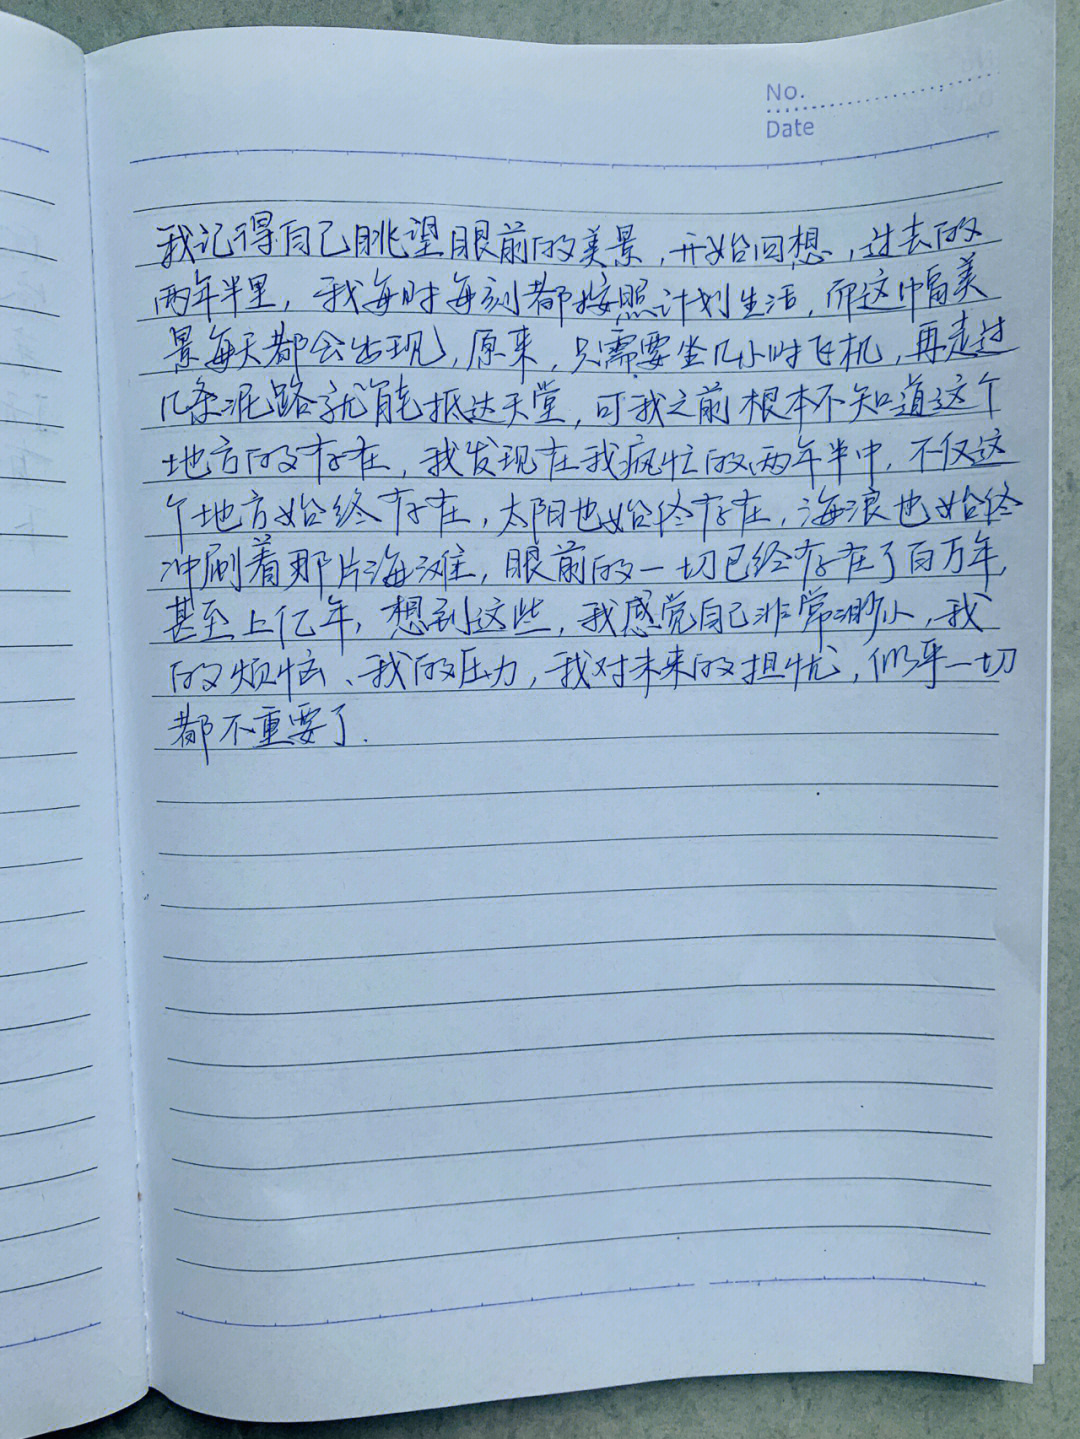 No.
Date
我记得自己眺望眼前的美景，开始回想，过去的
两年半里，我每时每刻都按照计划生活，而这中富美
景每天都会出现，原来，只需要坐几小时飞机，再走过
几条泥路就能抵达天堂，可我之前根本不知道这个
地方的存在，我发现在我疯忙的两年半中，不仅这
个地方始终存在，太阳也始终存在，海浪也始终
冲刷着那片海滩，眼前的一切已经存在了百万年，
甚至上亿年，想到这些，我感觉自己非常渺小，我
的烦恼、我的压力，我对未来的担忧，似乎一切
都不重要了.